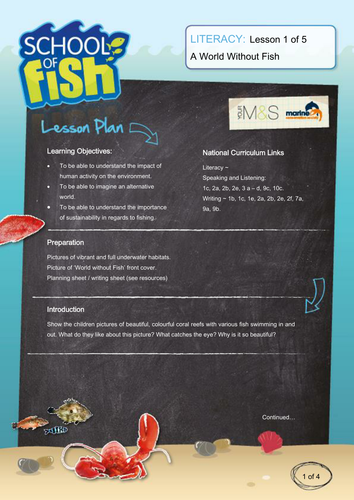 SCHOOL
OF
fish
LITERACY: Lesson 1 of 5
A World Without Fish
YOUR
M&S
marine
Lesson Plan
Learning Objectives:
To be able to understand the impact of
human activity on the environment.
To be able to imagine an alternative
world.
To be able to understand the importance
of sustainability in regards to fishing.
National Curriculum Links
Literacy –
Speaking and Listening:
1c, 2a, 2b, 2e, 3 a – d, 9c, 10c.
Writing – 1b, 1c, 1e, 2a, 2b, 2e, 2f, 7a,
9a, 9b.
Preparation
Pictures of vibrant and full underwater habitats.
Picture of ‘World without Fish’ front cover.
Planning sheet / writing sheet (see resources)
Introduction
Show the children pictures of beautiful, colourful coral reefs with various fish swimming in and
out. What do they like about this picture? What catches the eye? Why is it so beautiful?
Continued…
1 of 4